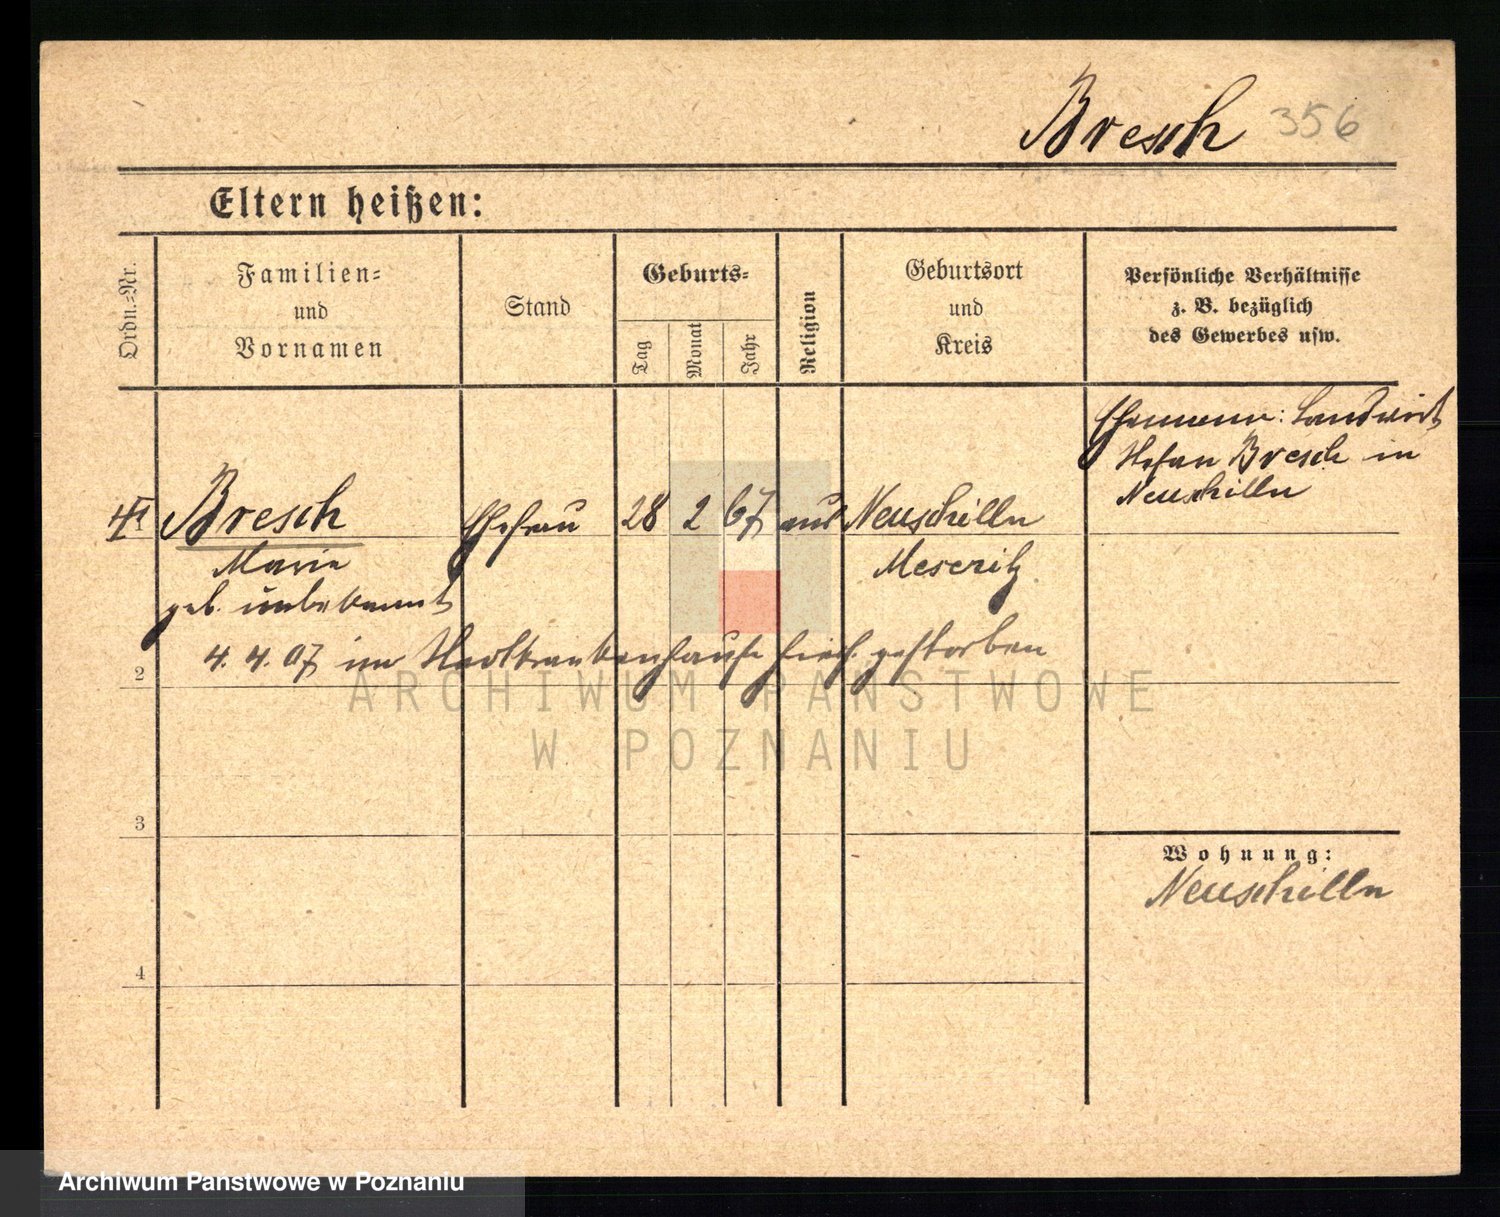 Bresch 356
Eltern heißen:
Ordn.=Nr.
Familien=
und
Vornamen
Stand
Geburts=
Tag
Monat
Jahr
Religion
Geburtsort
und
Kreis
Persönliche Verhältnisse
z. B. bezüglich
des Gewerbes usw.
Ehemann: Landwirt
Stefan Bresch in
Neuschilln
1 Bresch Ehefrau 28 2 67 aus Neuschilln
Marie Meseritz
geb. unbekannt
4. 4. 07 im Stadtkrankenhause hies. gestorben
2
3
Wohnung:
Neuschilln
4
ARCHIWUM PAŃSTWOWE
W POZNANIU
Archiwum Państwowe w Poznaniu